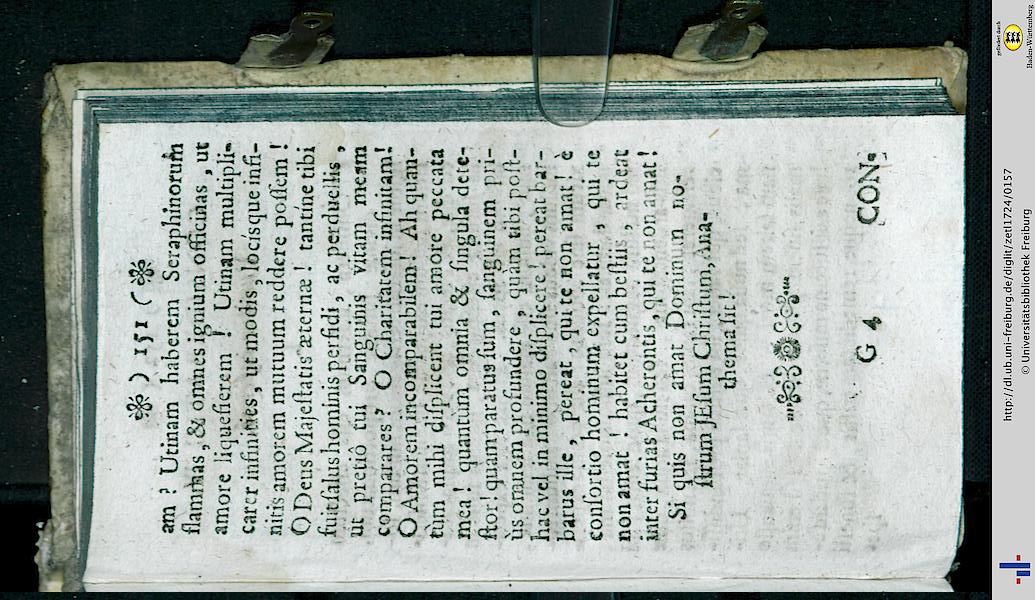 ) 151 (
am ? Utinam haberem Seraphinorum
flammas, & omnes ignium officinas, ut
amore liquefierem ! Utinam multipli-
carer infinities, ut modis, locisque infi-
nitis amorem mutuum reddere poſſem !
O Deus Majeſtatis æternæ ! tantine tibi
fuit ſalus hominis perfidi, ac perduellis,
ut pretiô tui Sanguinis vitam meam
comparares ? O Charitatem infinitam!
O Amorem incomparabilem! Ah quan-
tùm mihi diſplicent tui amore peccata
mea! quantum omnia & ſingula dete-
ſtor! quàm paratus ſum, ſanguinem pri-
ùs omnem profundere, quàm tibi poſt-
hac vel in minimo diſplicere ! pereat bar-
barus ille, pereat, qui te non amat! è
conſortio hominum expellatur, qui te
non amat ! habitet cum beſtiis, ardeat
inter furias Acherontis, qui te non amat!
Si quis non amat Dominum no-
ſtrum JEſum Chriſtum, Ana-
thema ſit!
G 4 CON-
http://dl.ub.uni-freiburg.de/diglit/zetl1724/0157
© Universitätsbibliothek Freiburg
gefördert durch
Baden-Württemberg